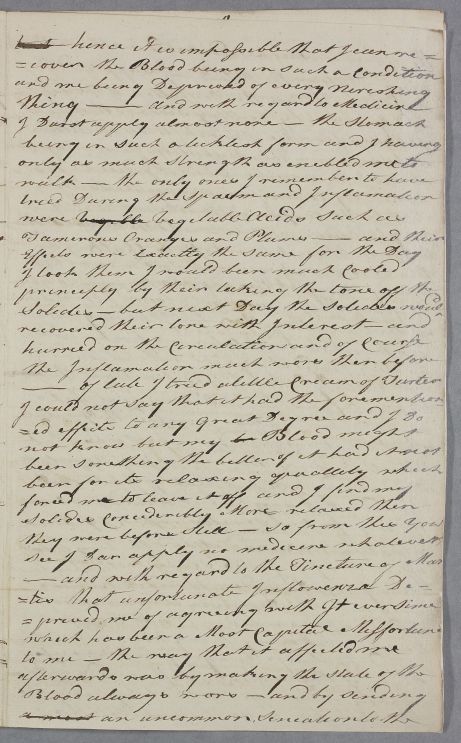 hence it is impossible that I can re =
= cover the Blood being in such a Condition
and me being Deprived of every nurishing
thing —— and with regard to Medicin
I Durst apply almost none — the Stomach
being in such a ticklest form and I having
only as much Strength as enebled me to
walk — the only ones I remember to have
tried During the Spasm and Inflamation
were Vegetable Acids such as
Tamerons Oranges and Plums —— and their
Effects were Exactly the same for the Day
I took them I would been much Cooled
princeply by their taking the tone off the
Solides — but next Day the Solides would
recovered their tone with Interest and
hurried on the Circulation and of Course
the Inflamation much more then before
—— of late I tried a little Cream of Tarter
I could not say that it had the foremention
= ed effects to any great Degree and I do
not know but my Blood might
been something the better of it had it not
been for its relaxing quallity which
forced me to leave it off and I find my
Solides Consideribly More relaxed then
they were before Still — so from this you
see I Dar apply no medicine whatever
—— and with regard to the Tincture of Mar
= tis that unfortunate Inflowenza De =
= prived me of agreeing with It ever since
which has been a Most Capital Misfortune
to me — the way that it affected me
afterwards was by making the state of the
Blood always wors — and by sending
an uncommon Sencation to the